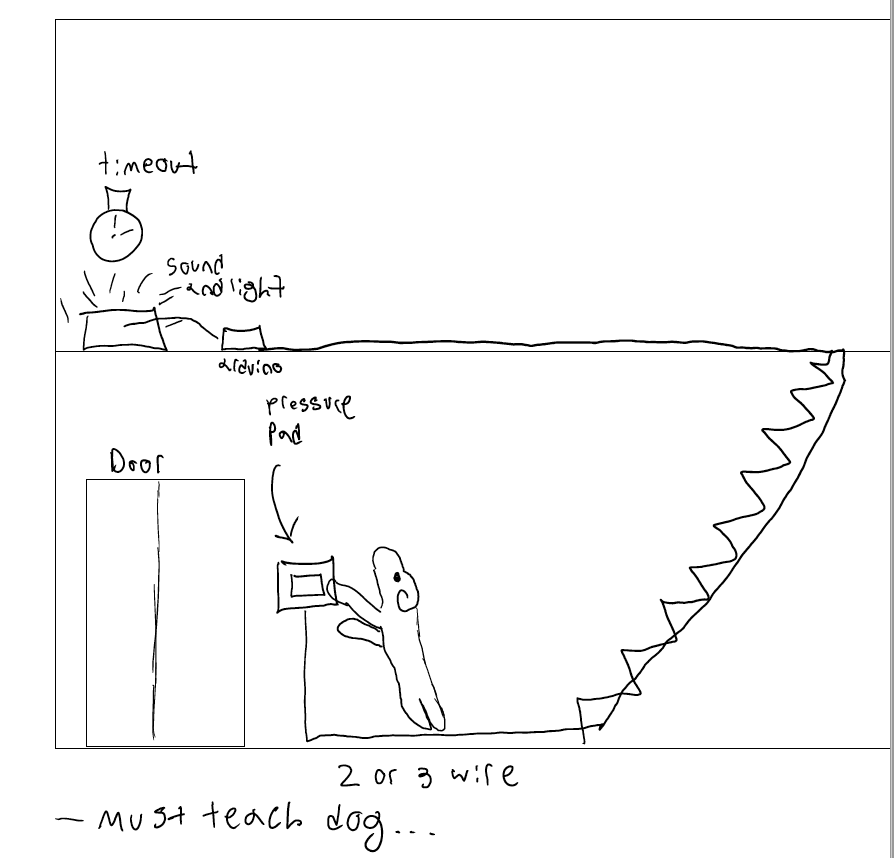 timeout
sound
and light
arduino
pressure
Pad
Door
2 or 3 wire
- Must teach dog...